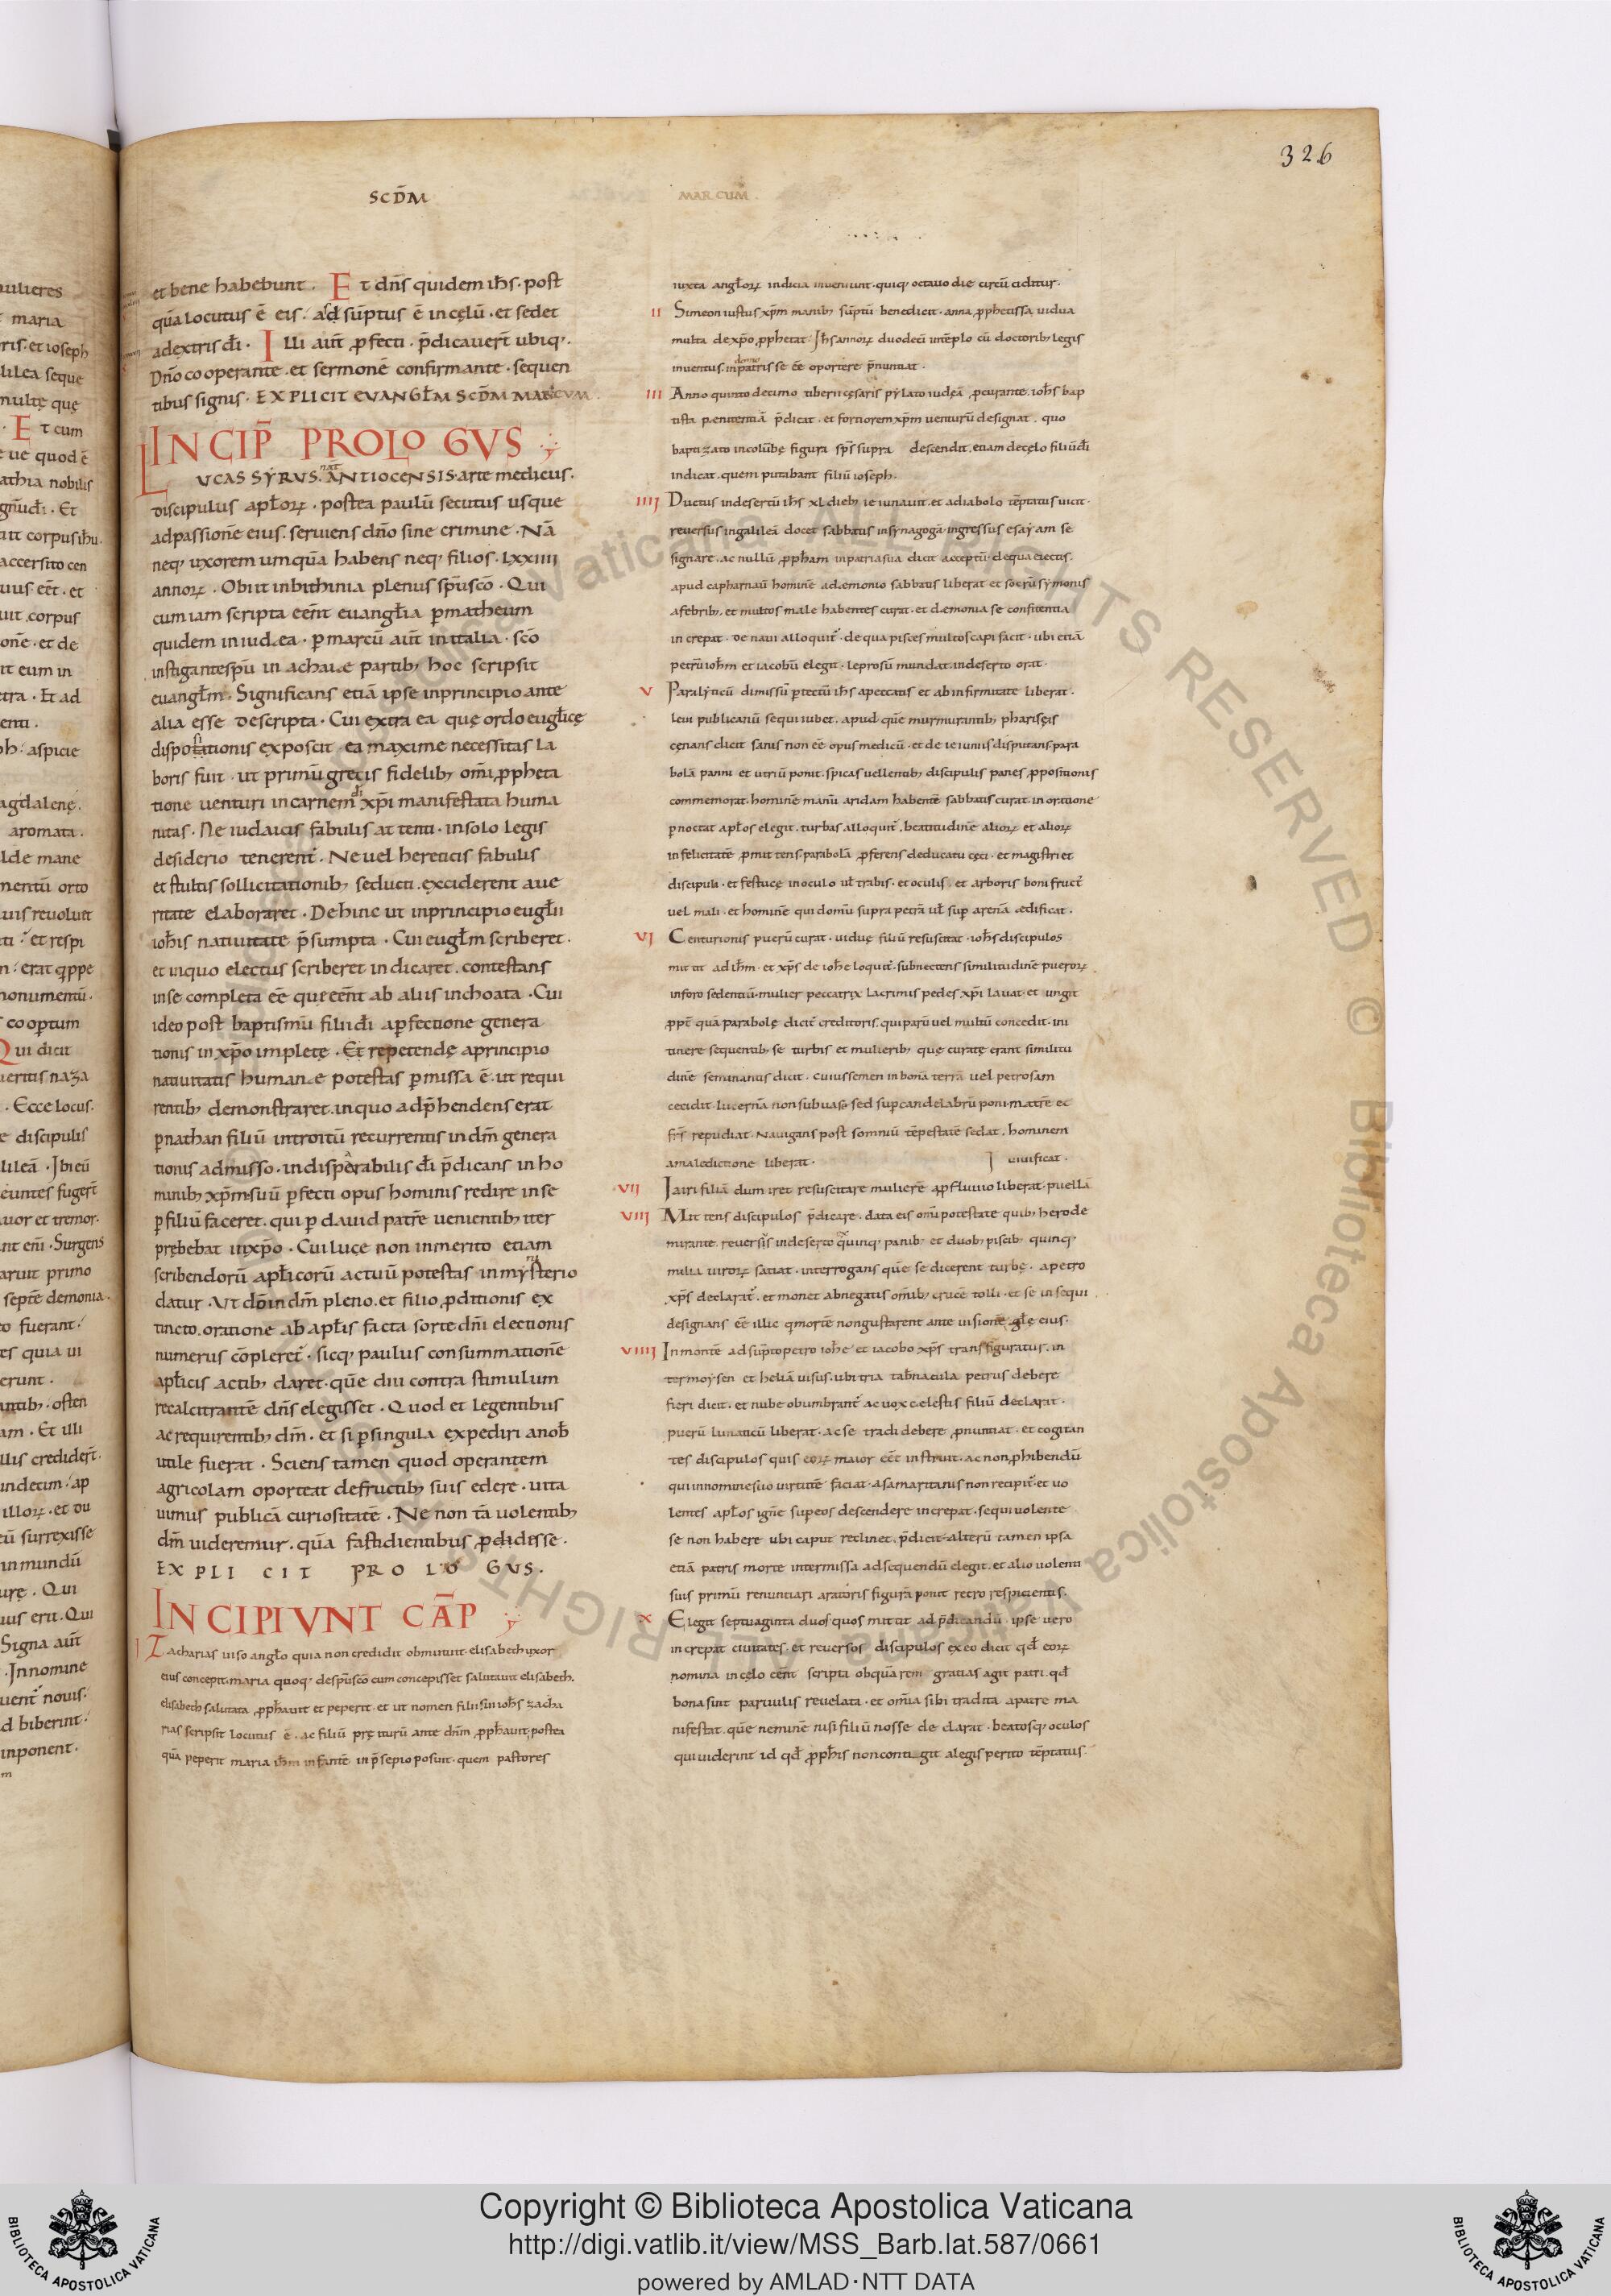 326
SCDM̄ MARCUM.
et bene habebunt. Et dn̄s quidem ih̄s. post
quā locutus ē eis. adsūptus ē in cęlū. et sedet
adextris dī. Illi aut̄ ꝓfecti. p̄dicauer̄t ubiq;.
Dn̄o cooperante. et sermonē confirmante. sequen
tibus signis. EXPLICIT EVANGL̄M SCD̄M MARCVM.
INCIP̄ PROLOGVS
LUCAS SYRVS. nat̄ ANTIOCENSIS. arte medicus.
discipulus apl̄oꝝ. postea paulū secutus usque
adpassionē eius. seruiens dn̄o sine crimine. Nā
neq; uxorem umquā habens neq; filios. LXXIIII
annoꝝ. Obiit inbithinia plenus sp̄uscō. Qui
cum iam scripta eēnt euangl̄ia ꝑ matheum
quidem in iudæa. ꝑ marcū aut̄ in italia. scō
instigante sp̄u in achaiæ partib; hoc scripsit
euangl̄m. Significans etiā ipse inprincipio ante
alia esse descripta. Cui extra ea quę ordo eugl̄icę
dispositionis exposcit. ea maxime necessitas la
boris fuit. ut primū gręcis fidelib; om̄i ꝓpheta
tione uenturi in carnem dī xp̄i manifestata huma
nitas. Ne iudaicis fabulis at tenti. in solo legis
desiderio tenerent̄. Ne uel hereticis fabulis
et stultis sollicitationib; seducti. exciderent a ue
ritate elaboraret. Dehinc ut inprincipio eugl̄ii
ioh̄is natiuitate p̄sumpta. Cui eugl̄m scriberet.
et inquo electus scriberet indicaret. contestans
inse completa eē que eēnt ab aliis inchoata. Cui
ideo post baptismū filii dī a ꝑfectione genera
tionis in xp̄o implete. Et repetendę a principio
natiuitatis humanæ potestas ꝑmissa ē. ut requi
rentib; demonstraret. inquo adp̄hendens erat
ꝑ nathan filiū introitū recurrentis in dm̄ genera
tionis admisso. indisperabilis dī p̄dicans in ho
minib; xp̄m suū ꝑfecti opus hominis redire in se
ꝑ filiū faceret. qui ꝑ dauid patrē uenientib; iter
prębebat in xp̄o. Cui luce non inmerito etiam
scribendorū apl̄icorū actuū potestas in mysterio
datur. Ut dō in dm̄ pleno. et filio ꝓditionis ex
tincto. oratione ab apl̄is facta sorte dn̄i electionis
numerus cōpleret̄. sicq; paulus consummationē
apl̄icis actib; daret. quē diu contra stimulum
recalcitrantē dn̄s elegisset. Quod et legentibus
ac requirentib; dm̄. et si ꝑ singula expediri a nob̄
utile fuerat. Sciens tamen quod operantem
agricolam oporteat defructib; suis edere. uita
uimus publicā curiositatē. Ne non tā uolentib;
dm̄ uideremur. quā fastidientibus ꝓdidisse.
EXPLICIT PROLOGVS.
INCIPIVNT CĀP
I Zacharias uiso angl̄o quia non credidit obmutuit. elisabeth uxor
eius concepit. maria quoq; de sp̄uscō cum concepisset salutauit elisabeth.
elisabeth salutata ꝓph̄auit et peperit. et ut nomen filii sui ioh̄s zacha
rias scripsit locutus ē. ac filiū prę iturū ante dn̄m ꝓph̄auit. postea
quā peperit maria ih̄m infantē in p̄sepio posuit. quem pastores
iuxta angl̄oꝝ indicia inueniunt. quiq; octauo die circū ciditur.
II Simeon iustus xp̄m manib; sūptū benedicit. anna ꝓphetissa uidua
multa de xp̄o ꝓphetat. Ih̄s annoꝝ duodecī in tēplo cū doctorib; legis
inuentus. in domo patris se eē oportere p̄nuntiat.
III Anno quinto decimo tiberii cęsaris pylato iudeā ꝓcurante. ioh̄s bap
tista pænitentiā p̄dicat. et fortiorem xp̄m uenturū designat. quo
baptizato in columbę figura sp̄s supra descendit. etiam de cęlo filiū dī
indicat. quem putabant filiū ioseph.
IIII Ductus indesertū ih̄s xl dieb; ieiunauit. et a diabolo tēptatus uicit.
reuersus in galileā docet sabbatis in synagoga. ingressus esayam se
signare. ac nullū ꝓph̄am in patria sua dicit acceptū. de qua eiectus.
apud capharnaū hominē a dæmonio sabbatis liberat et socrū symonis
a febrib;. et multos male habentes curat. et dæmonia se confitentia
increpat. De naui alloquit̄. de qua pisces multos capi facit. ubi etiā
petrū ioh̄m et iacobū elegit. leprosū mundat. in deserto orat.
V Paralyticū dimissū ꝑ tectū ih̄s a peccatis et ab infirmitate liberat.
leui publicanū sequi iubet. apud quē murmurantib; phariseis
cęnans dicit sanis non eē opus medicū. et de ieiuniis disputans para
bolā panni et utriū ponit. spicas uellentib; discipulis panes ꝓpositionis
commemorat. hominē manū aridam habentē sabbatis curat. in oratione
ꝑnoctat apl̄os elegit. turbas alloquit̄. beatitudinē alioꝝ et alioꝝ
infelicitatē ꝓmittens. parabolā ꝓferens de ducatu cęci. et magistri et
discipuli. et festucę in oculo ul̄ trabis. et oculis. et arboris boni fruct̄
uel mali. et hominē qui domū supra petrā ul̄ suꝑ arenā ædificat.
VI Centurionis puerū curat. uiduę filiū resuscitat. ioh̄s discipulos
mittit ad ih̄m. et xp̄s de ioh̄e loquit̄. subnectens similitudinē pueroꝝ
in foro sedentiū. mulier peccatrix lacrimis pedes xp̄i lauat. et ungit
ꝓpt̄ quā parabolę dicit̄ creditoris. qui parū uel multū concedit. iti
tinere sequentib; se turbis et mulierib; quę curatę erant similitu
dinē seminantis dicit. cuius semen in bonā terrā uel petrosam
cecidit. lucernā non sub uase sed suꝑ candelabrū poni. matrē et
frēs repudiat. Nauigans post somniū tēpestatē sedat. hominem
a maledictione liberat. ⌉ uiuificat.
VII Iairi filiā dum iret resuscitare mulierē a ꝓfluuio liberat. puellā
VIII Mittens discipulos p̄dicare. data eis om̄i potestate quib; herode
mirante. reuersis in deserto quinq; panib; et duob; piscib; quinq;
milia uiroꝝ satiat. interrogans quē se dicerent turbę. a petro
xp̄s declarat̄. et monet abnegatis omīb; crucē tolli. et se in sequi
designans eē illic q morte non gustarent ante uisionē gl̄ę eius.
VIIII In monte adsūpto petro ioh̄e et iacobo xp̄s transfiguratur. in
ter moysen et heliā uisus. ubi tria tab̄nacula petrus debere
fieri dicit. et nube obumbrant̄ ac uox cælestis filiū declarat.
puerū lunaticū liberat. ac se tradi debere ꝓnuntiat. et cogitan
tes discipulos quis eoꝝ maior eēt instruit. ac non ꝓhibendū
qui in nomine suo uirtutē faciat. a samaritanis non recipit̄. et uo
lentes apl̄os ignē suꝑ eos descendere increpat. sequi uolente
se non habere ubi caput reclinet. p̄dicit. alterū tamen ipsa
etiā patris morte intermissa ad sequendū elegit. et alio uolenti
suis primū renuntiari aratoris figurā ponit retro respicientis.
X Elegit septuaginta duos quos mittit ad p̄dicandū. ipse uero
increpat ciuitates. et reuersos discipulos ex eo dicit qd̄ eoꝝ
nomina in cęlo eēnt scripta ob quā rem gratias agit patri. qd̄
bona sint paruulis reuelata. et om̄ia sibi tradita a patre ma
nifestat. quē neminē nisi filiū nosse declarat. beatosq; oculos
qui uiderint id qd̄ ꝓph̄is non contigit a legis perito tēptatus.
Copyright © Biblioteca Apostolica Vaticana
http://digi.vatlib.it/view/MSS_Barb.lat.587/0661
powered by AMLAD·NTT DATA